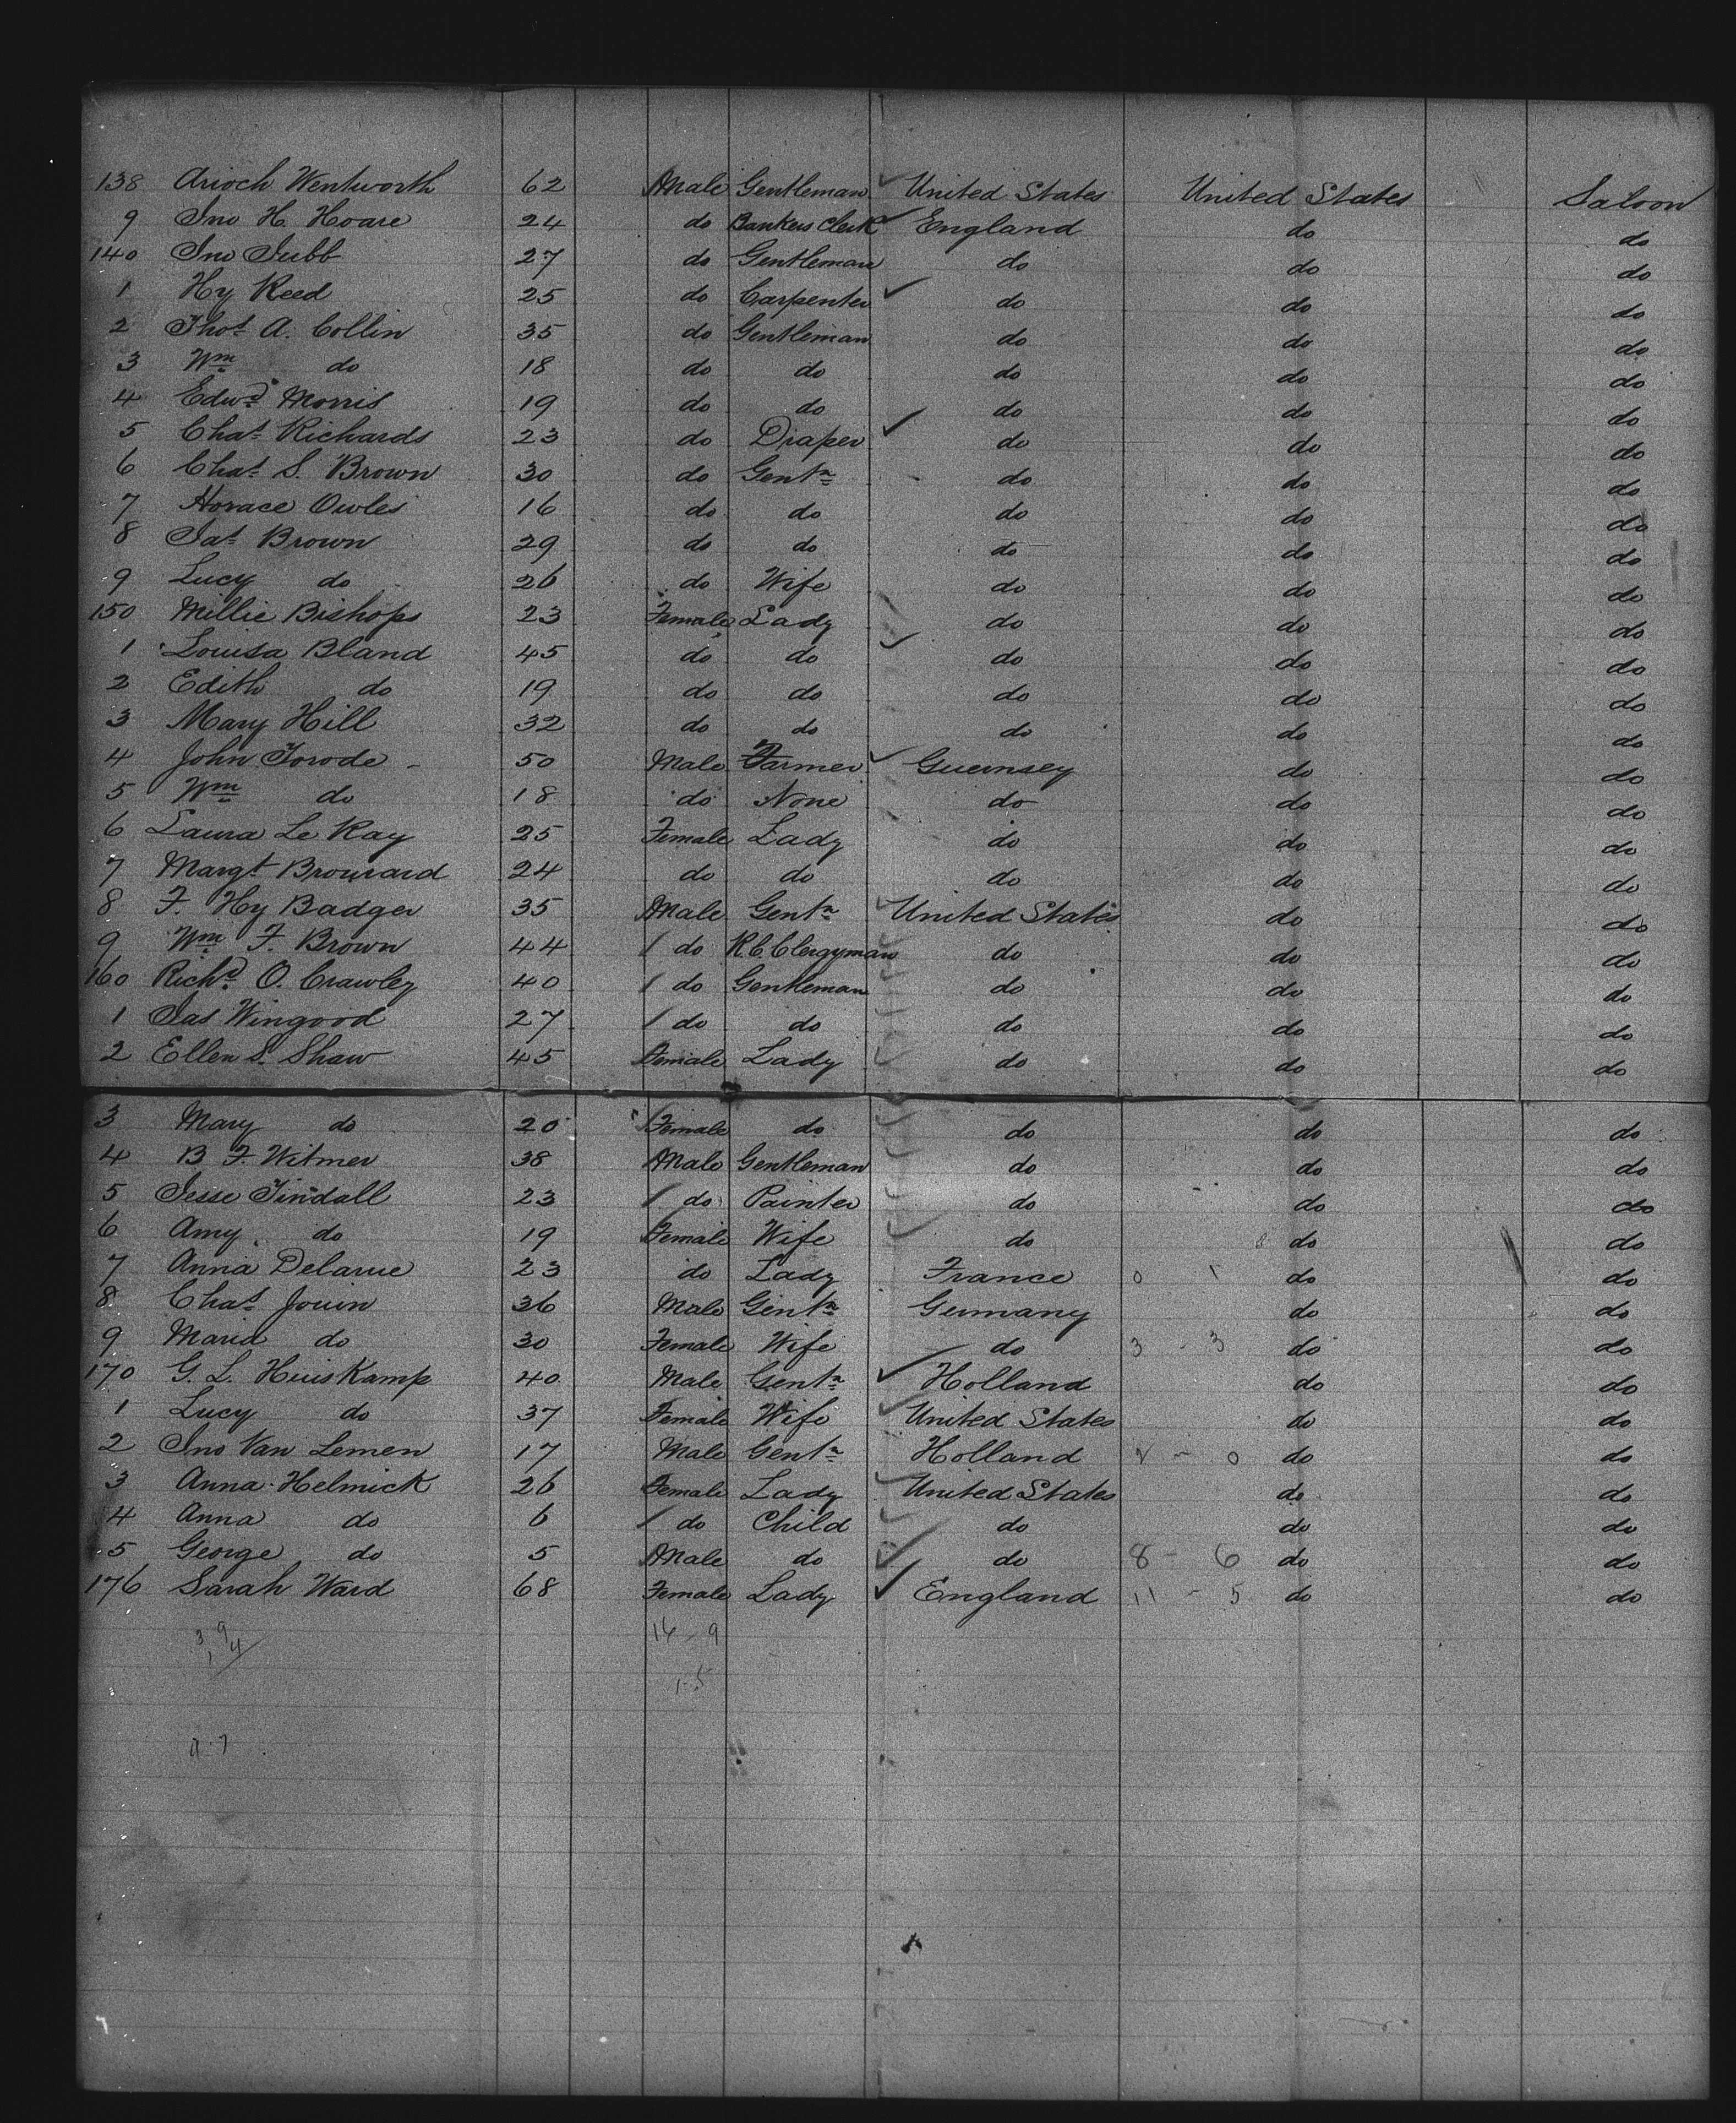 138 Arioch Wentworth 62 Male Gentleman United States United States Saloon
9 Jno H. Hoare 24 do Bankers Clerk England do do
140 Jno Jubb 27 do Gentleman do do do
1 Hy Reed 25 do Carpenter do do do
2 Thos A. Collin 35 do Gentleman do do do
3 Wm do 18 do do do do do
4 Edwd Morris 19 do do do do do
5 Chas Richards 23 do Draper do do do
6 Chas S. Brown 30 do Gentn do do do
7 Horace Owles 16 do do do do do
8 Jas Brown 29 do do do do do
9 Lucy do 26 do Wife do do do
150 Millie Bishops 23 Female Lady do do do
1 Louisa Bland 45 do do do do do
2 Edith do 19 do do do do do
3 Mary Hill 32 do do do do do
4 John Torode 50 Male Farmer Guernsey do do
5 Wm do 18 do None do do do
6 Laura Le Ray 25 Female Lady do do do
7 Margt Brouard 24 do do do do do
8 F. Hy Badger 35 Male Gentn United States do do
9 Wm F. Brown 44 do R.C. Clergyman do do do
160 Richd O. Crawley 40 do Gentleman do do do
1 Jas Wingood 27 do do do do do
2 Ellen S. Shaw 45 Female Lady do do do
3 Mary do 20 Female do do do do
4 B F. Witmer 38 Male Gentleman do do do
5 Jesse Tindall 23 do Painter do do do
6 Amy do 19 Female Wife do do do
7 Anna Delarue 23 do Lady France 0 1 do do
8 Chas Jouin 36 Male Gentn Germany do do
9 Maria do 30 Female Wife do 3 - 3 do do
170 G. L. HuisKamp 40 Male Gentn Holland do do
1 Lucy do 37 Female Wife United States do do
2 Jno Van Lemen 17 Male Gentn Holland 2 - 0 do do
3 Anna Helmick 26 Female Lady United States do do
4 Anna do 6 do Child do do do
5 George do 5 Male do do 8 - 6 do do
176 Sarah Ward 68 Female Lady England 11 - 5 do do
16 - 9